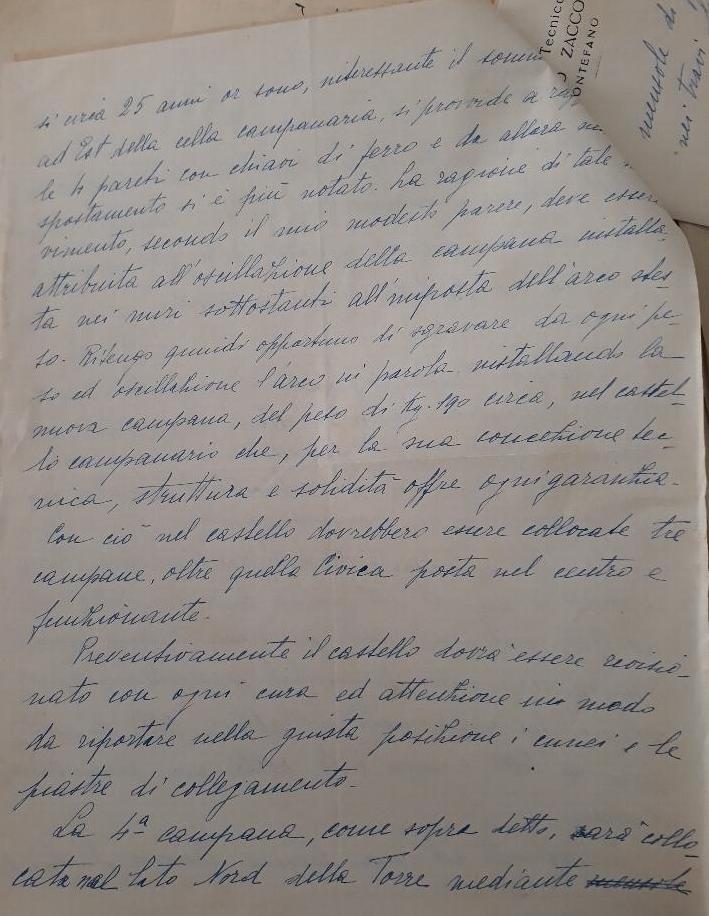 si circa 25 anni or sono, interessante il
ad Est della cella campanaria, si provvide a
le 4 pareti con chiavi di ferro e da allora
spostamento si è più notato. La ragione di tale
vimento, secondo il mio modesto parere, deve esser
attribuita all'oscillazione della campana installa-
ta nei muri sottostanti all'imposta dell'arco stes-
so. Ritengo quindi opportuno di sgravare da ogni pe-
so ed oscillazione l'arco in parola installando la
nuova campana, del peso di Kg. 190 circa, nel castel-
lo campanario che, per la sua concezione tec-
nica, struttura e solidità offre ogni garanzia.
Con ciò nel castello dovrebbero essere collocate tre
campane, oltre quella Civica posta nel centro e
funzionante.
Preventivamente il castello dovrà essere revisio-
nato con ogni cura ed attenzione in modo
da riportare nella giusta posizione i cunei e le
piastre di collegamento.
La 4ª campana, come sopra detto, sarà collo-
cata nel lato Nord della Torre mediante mensole
Tecnico
ZACCO
ONTEFANO
mensole di
nei travi